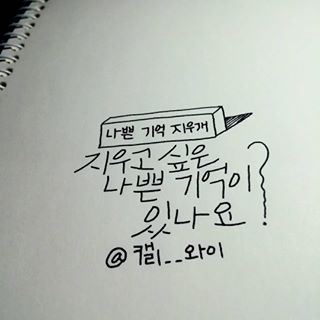 나쁜 기억 지우개
지우고 싶은
나쁜 기억이
있나요?
@캘리__와이